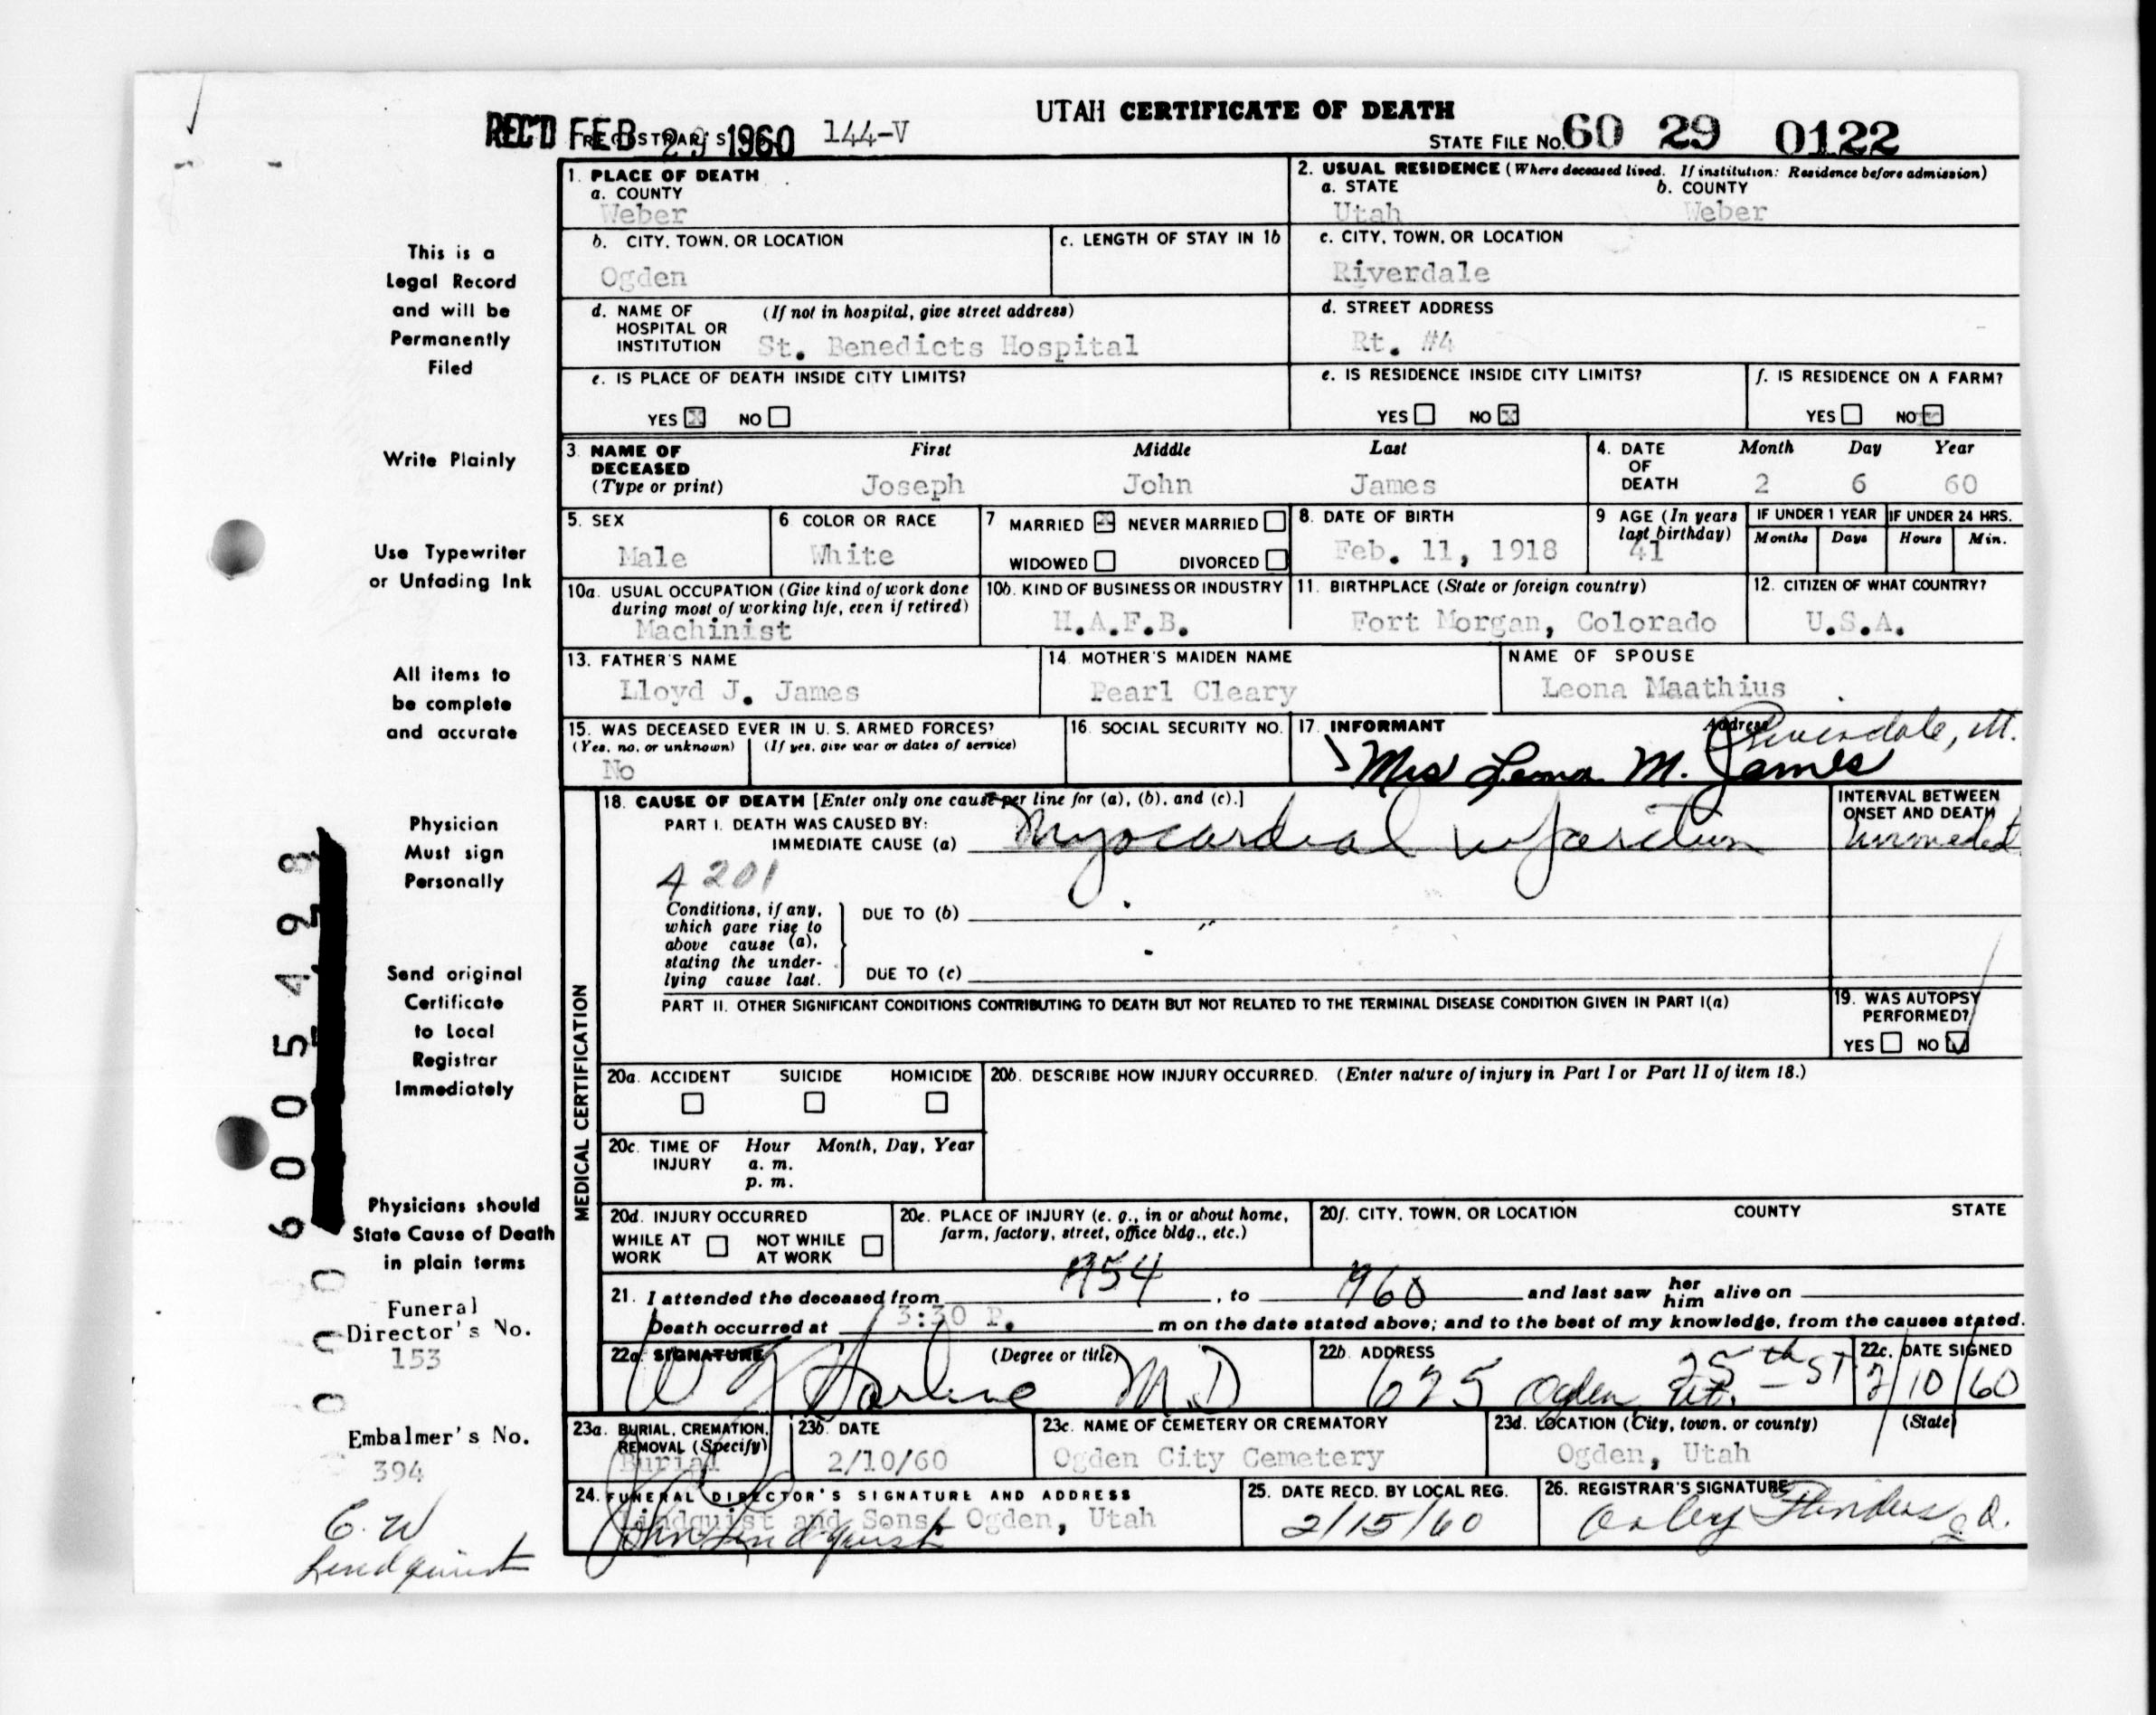 UTAH CERTIFICATE OF DEATH
REC'D FEB 29 1960 REGISTRAR'S 144-V
STATE FILE NO. 60 29 0122
This is a
Legal Record
and will be
Permanently
Filed
Write Plainly
Use Typewriter
or Unfading Ink
All items to
be complete
and accurate
Physician
Must sign
Personally
Send original
Certificate
to Local
Registrar
Immediately
Physicians should
State Cause of Death
in plain terms
Funeral
Director's No.
153
Embalmer's No.
394
C. W
Lindquist
6005493
1. PLACE OF DEATH
a. COUNTY
Weber
2. USUAL RESIDENCE (Where deceased lived. If institution: Residence before admission)
a. STATE b. COUNTY
Utah Weber
b. CITY, TOWN, OR LOCATION
Ogden
c. LENGTH OF STAY IN 1b
c. CITY, TOWN, OR LOCATION
Riverdale
d. NAME OF (If not in hospital, give street address)
HOSPITAL OR
INSTITUTION St. Benedicts Hospital
d. STREET ADDRESS
Rt. #4
e. IS PLACE OF DEATH INSIDE CITY LIMITS?
YES X NO
e. IS RESIDENCE INSIDE CITY LIMITS?
YES NO X
f. IS RESIDENCE ON A FARM?
YES NO X
3. NAME OF DECEASED (Type or print)
First Middle Last
Joseph John James
4. DATE OF DEATH
Month Day Year
2 6 60
5. SEX
Male
6 COLOR OR RACE
White
7 MARRIED X NEVER MARRIED
WIDOWED DIVORCED
8. DATE OF BIRTH
Feb. 11, 1918
9 AGE (In years last birthday)
41
IF UNDER 1 YEAR IF UNDER 24 HRS.
Months Days Hours Min.
10a. USUAL OCCUPATION (Give kind of work done
during most of working life, even if retired)
Machinist
10b. KIND OF BUSINESS OR INDUSTRY
H.A.F.B.
11. BIRTHPLACE (State or foreign country)
Fort Morgan, Colorado
12. CITIZEN OF WHAT COUNTRY?
U.S.A.
13. FATHER'S NAME
Lloyd J. James
14. MOTHER'S MAIDEN NAME
Pearl Cleary
NAME OF SPOUSE
Leona Maathius
15. WAS DECEASED EVER IN U. S. ARMED FORCES?
(Yes, no, or unknown) (If yes, give war or dates of service)
No
16. SOCIAL SECURITY NO.
17. INFORMANT Address
Riverdale, Ut.
Mrs Leona M. James
MEDICAL CERTIFICATION
18. CAUSE OF DEATH [Enter only one cause per line for (a), (b), and (c).]
PART I. DEATH WAS CAUSED BY:
IMMEDIATE CAUSE (a) Myocardial infarction
INTERVAL BETWEEN
ONSET AND DEATH
4201
Conditions, if any,
which gave rise to
above cause (a),
stating the under-
lying cause last.
DUE TO (b)
DUE TO (c)
PART II. OTHER SIGNIFICANT CONDITIONS CONTRIBUTING TO DEATH BUT NOT RELATED TO THE TERMINAL DISEASE CONDITION GIVEN IN PART I(a)
19. WAS AUTOPSY
PERFORMED?
YES NO
20a. ACCIDENT SUICIDE HOMICIDE
20b. DESCRIBE HOW INJURY OCCURRED. (Enter nature of injury in Part I or Part II of item 18.)
20c. TIME OF Hour Month, Day, Year
INJURY a. m.
p. m.
20d. INJURY OCCURRED
WHILE AT WORK NOT WHILE AT WORK
20e. PLACE OF INJURY (e. g., in or about home,
farm, factory, street, office bldg., etc.)
20f. CITY, TOWN, OR LOCATION COUNTY STATE
21. I attended the deceased from 1954, to 1960 and last saw her him alive on
Death occurred at 3:30 P. m on the date stated above; and to the best of my knowledge, from the causes stated.
22a. SIGNATURE (Degree or title)
M.D
22b. ADDRESS
625 25th St Ogden Ut.
22c. DATE SIGNED
2/10/60
23a. BURIAL, CREMATION,
REMOVAL (Specify)
Burial
23b. DATE
2/10/60
23c. NAME OF CEMETERY OR CREMATORY
Ogden City Cemetery
23d. LOCATION (City, town, or county) (State)
Ogden, Utah
24. FUNERAL DIRECTOR'S SIGNATURE AND ADDRESS
Lindquist and Sons, Ogden, Utah
John Lindquist
25. DATE RECD. BY LOCAL REG.
2/15/60
26. REGISTRAR'S SIGNATURE